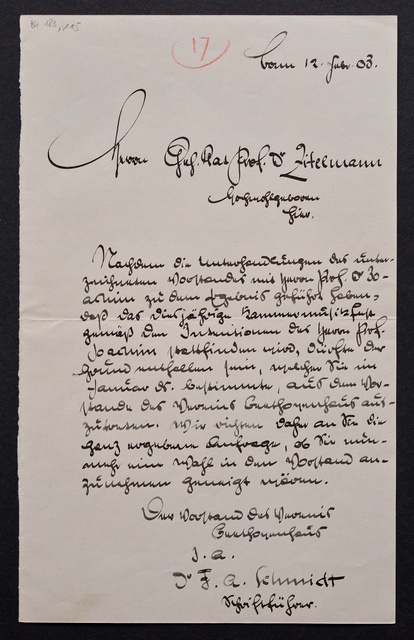 BH 183, 115
17
Bonn 12. Febr. 03.
Herrn Geh. Rat Prof. Dr Zitelmann
Hochwohlgeboren
Hier.
Nachdem die Unterhandlungen des unter-
zeichneten Vorstandes mit Herrn Prof. Dr Jo-
achim zu dem Ergebnis geführt haben,
daß das diesjährige Kammermusikfest
gemäß den Intentionen des Herrn Prof.
Joachim stattfinden wird, dürfte der
Grund entfallen sein, welcher Sie im
Januar ds. bestimmte, aus dem Vor-
stande des Vereins Beethovenhaus aus-
zutreten. Wir richten daher an Sie die
ganz ergebene Anfrage, ob Sie nun-
mehr eine Wahl in den Vorstand an-
zunehmen geneigt wären.
Der Vorstand des Vereins
Beethovenhaus
J. A.
Dr F. A. Schmidt
Schriftführer.